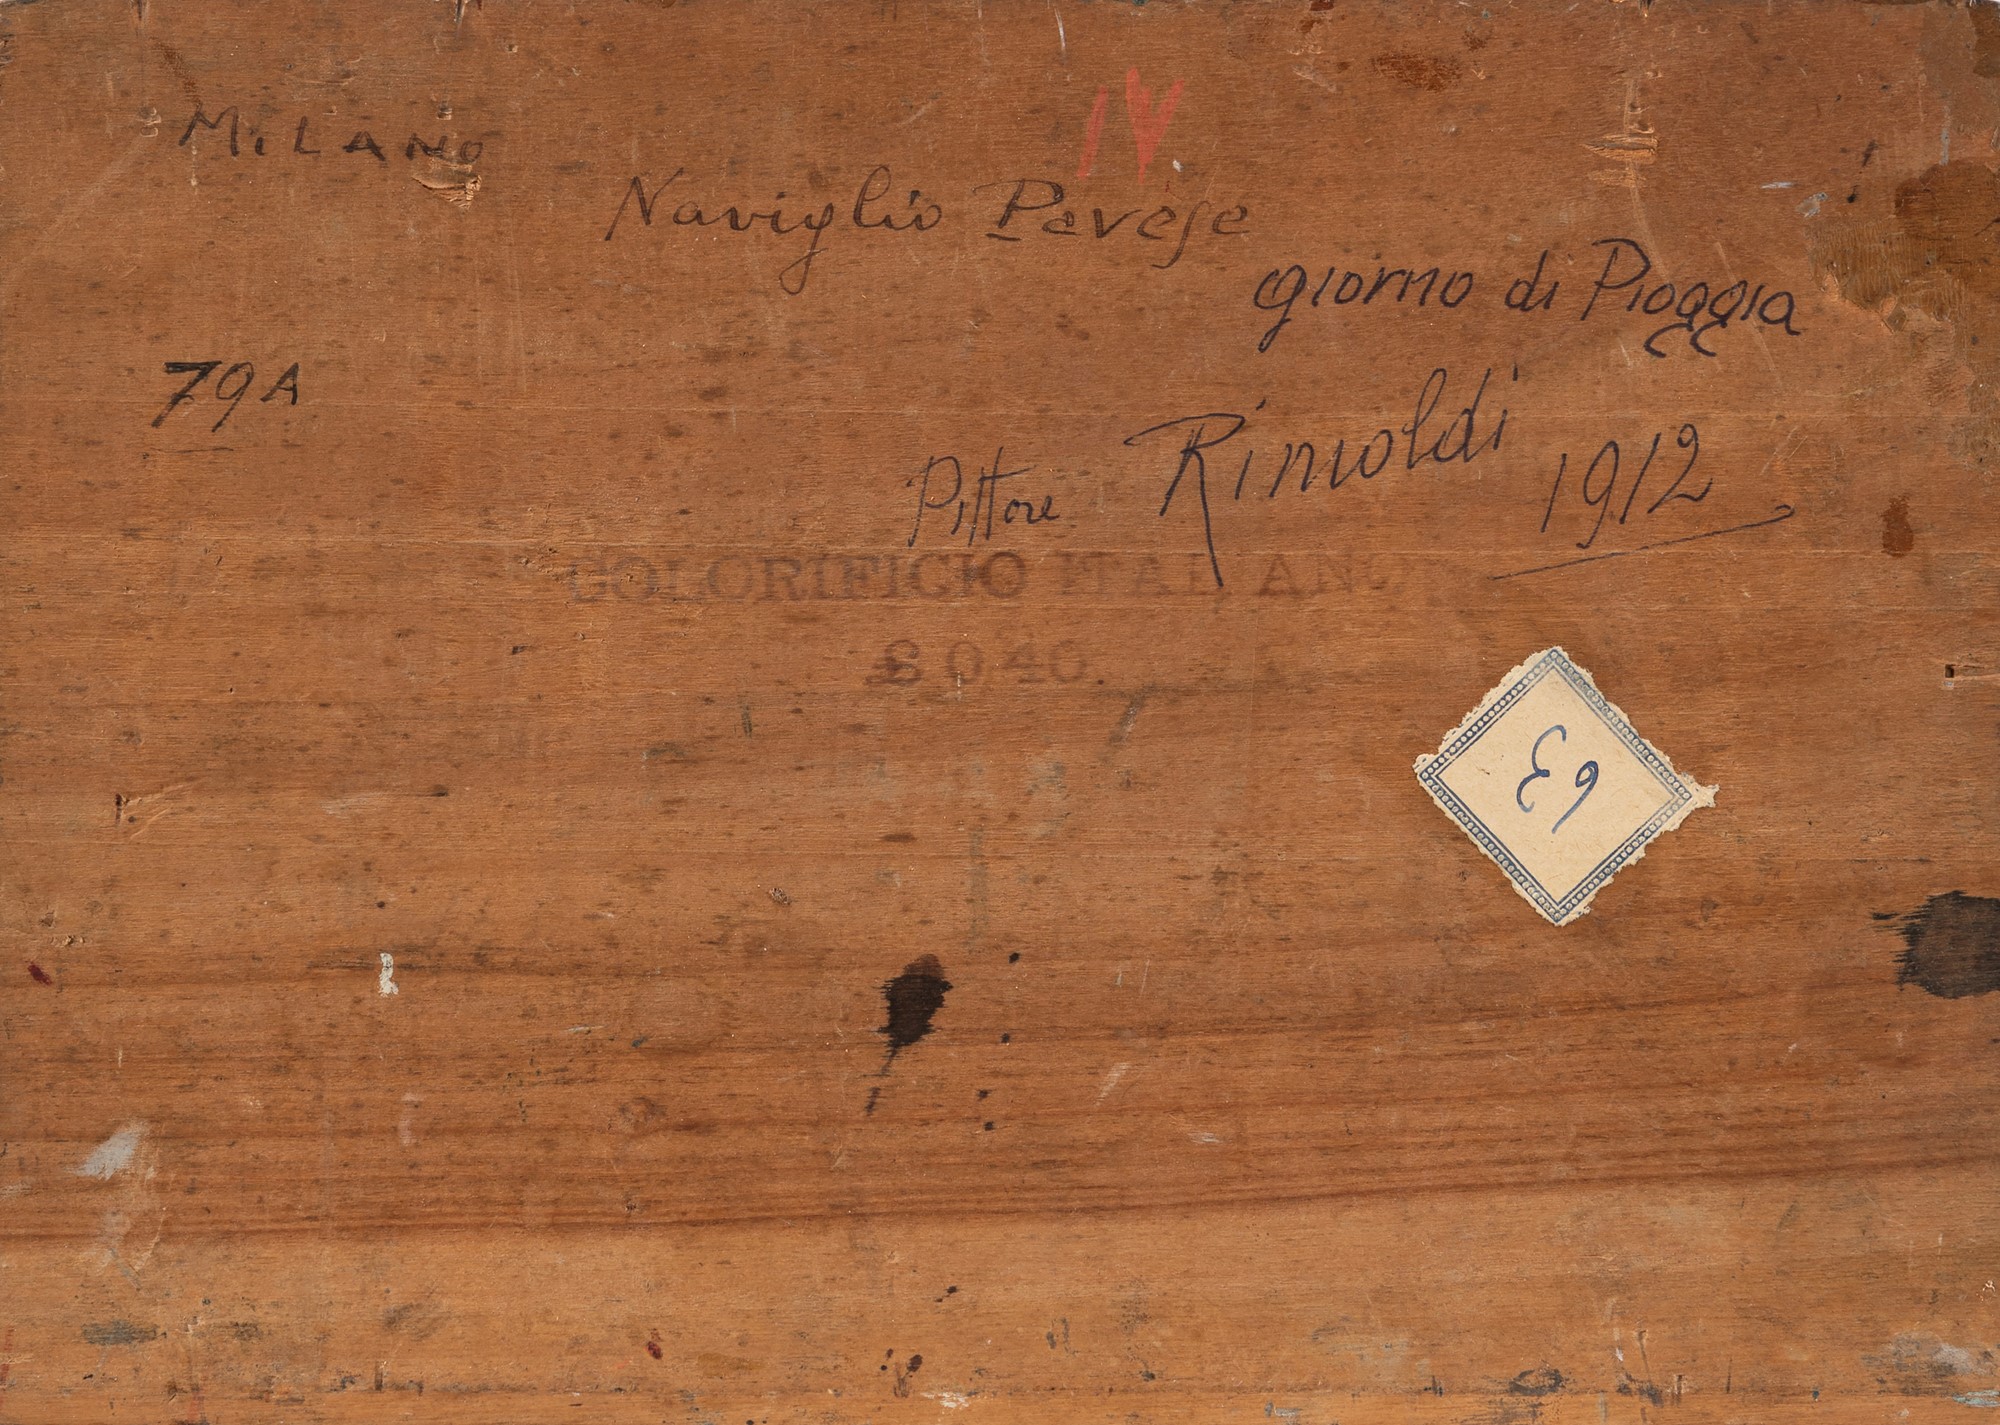 MiLANO
IV
Naviglio Pavese
giorno di Pioggia
79A
Pittore Rimoldi 1912
COLORIFICIO ITALIANO
£ 0.40.
63